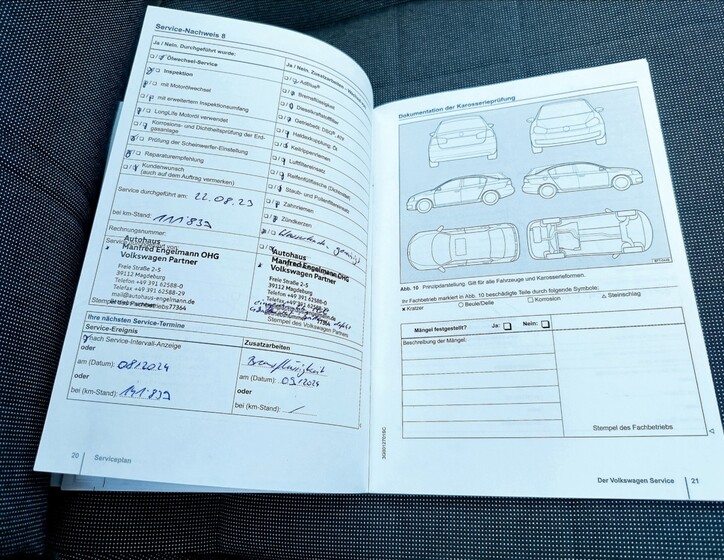 Service-Nachweis 8
Ja / Nein, Durchgeführt wurde:
Ölwechsel-Service
Inspektion
mit Motorölwechsel
mit erweitertem Inspektionsumfang
LongLife Motoröl verwendet
Korrosions- und Dichtheitsprüfung der Erdgasanlage
Prüfung der Scheinwerfer-Einstellung
Reparaturempfehlung
Kundenwunsch
(auch auf dem Auftrag vermerken)
Service durchgeführt am: 22.08.23
bei km-Stand: 111'839
Rechnungsnummer:
Autohaus
Manfred Engelmann OHG
Volkswagen Partner
Freie Straße 2-5
39112 Magdeburg
Telefon +49 391 62588-0
Telefax +49 391 62588-29
mail@autohaus-engelmann.de
77364
Ja / Nein, Zusatzarbeiten
AdBlue®
Bremsflüssigkeit
Dieselkraftstofffilter
Getriebeöl: DSG®
Haldexkupplung: Öl
Keilrippenriemen
Luftfiltereinsatz
Staub- und Pollenfiltereinsatz
Zahnriemen
Zündkerzen
Autohaus
Manfred Engelmann OHG
Volkswagen Partner
Freie Straße 2-5
39112 Magdeburg
Telefon +49 391 62588-0
Stempel des Volkswagen Partners
Ihre nächsten Service-Termine
Service-Ereignis
nach Service-Intervall-Anzeige
oder
am (Datum): 08.2024
oder
bei (km-Stand): 141'839
Zusatzarbeiten
Bremsflüssigkeit
am (Datum): 09.2024
oder
bei (km-Stand): /
20
Serviceplan
Dokumentation der Karosserieprüfung
Abb. 10 Prinzipdarstellung. Gilt für alle Fahrzeuge und Karosserieformen.
Ihr Fachbetrieb markiert in Abb. 10 beschädigte Teile durch folgende Symbole:
Kratzer
Beule/Delle
Korrosion
Steinschlag
Mängel festgestellt?
Ja:
Nein:
Beschreibung der Mängel:
Stempel des Fachbetriebs
Der Volkswagen Service
21